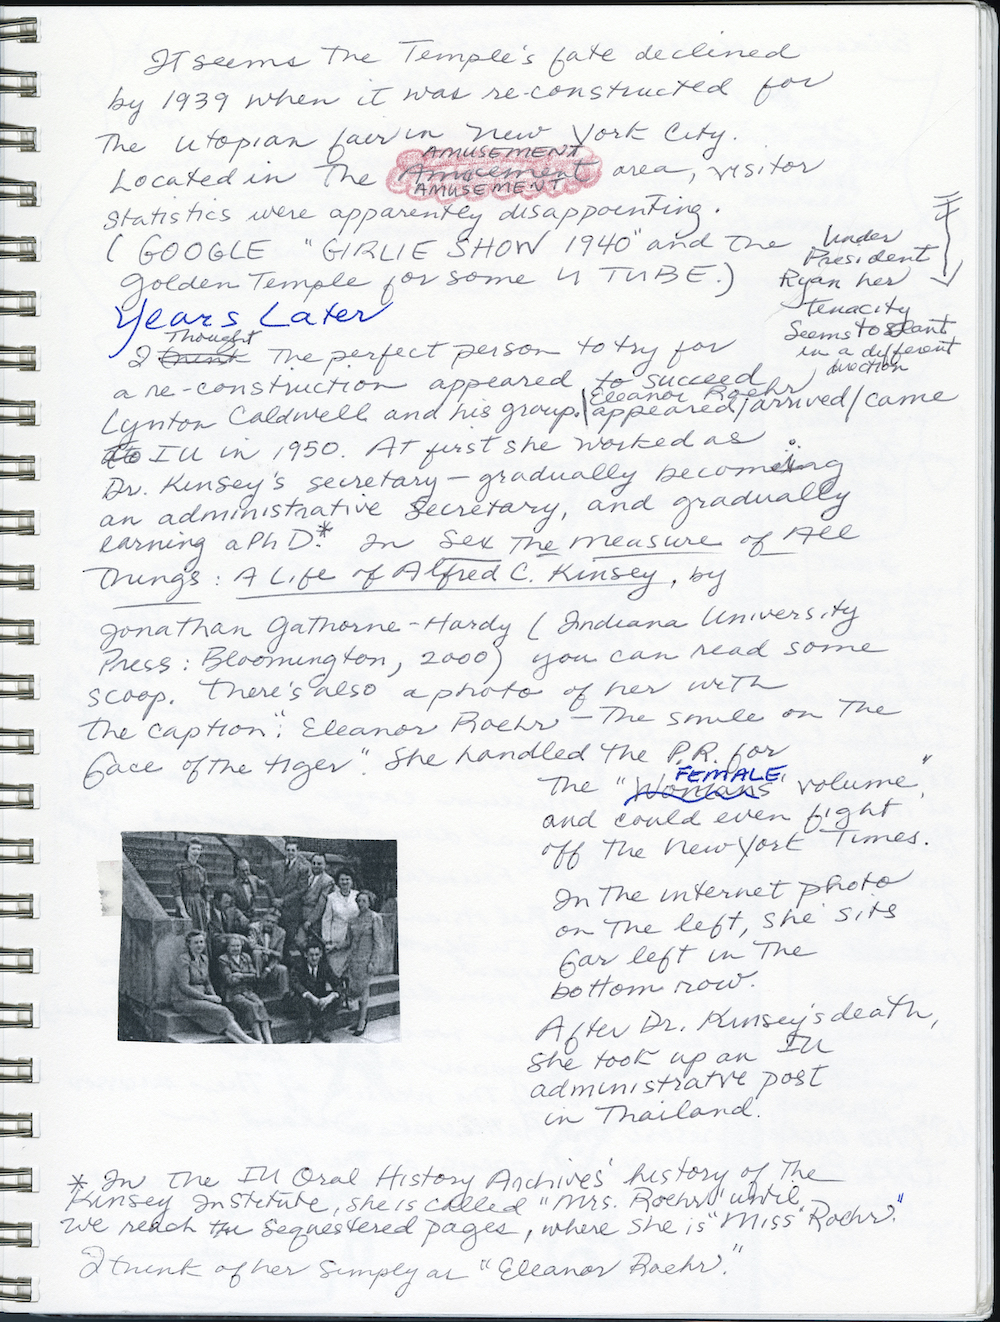 It seems the Temple's fate declined
by 1939 when it was re-constructed for
the utopian fair in New York City.
AMUSEMENT
Located in the Amusement area, visitor
AMUSEMENT
statistics were apparently disappointing.
( GOOGLE "GIRLIE SHOW 1940" and the
Golden Temple for some U TUBE.)
Under
President
Ryan her
tenacity
seems to slant
in a different
direction
Years Later
Thought
I think the perfect person to try for
a re-construction appeared to succeed
Eleanor Roehr
Lynton Caldwell and his group. appeared/arrived/came
to IU in 1950. At first she worked as
Dr. Kinsey's secretary – gradually becoming
an administrative secretary, and gradually
earning a PhD.* In Sex the Measure of All
Things: A Life of Alfred C. Kinsey, by
Jonathan Gathorne-Hardy ( Indiana University
Press: Bloomington, 2000) you can read some
scoop. There's also a photo of her with
the caption: "Eleanor Roehr – the smile on the
face of the tiger". She handled the P.R. for
FEMALE
the "Womans" volume,"
and could even fight
off the New York Times.
In the internet photo
on the left, she sits
far left in the
bottom row.
After Dr. Kinsey's death,
she took up an IU
administratve post
in Thailand.
* In the IU Oral History Archives' history of the
Kinsey Institute, she is called "Mrs. Roehr" until
we reach the sequestered pages, where she is "Miss Roehr."
I think of her simply as "Eleanor Roehr."